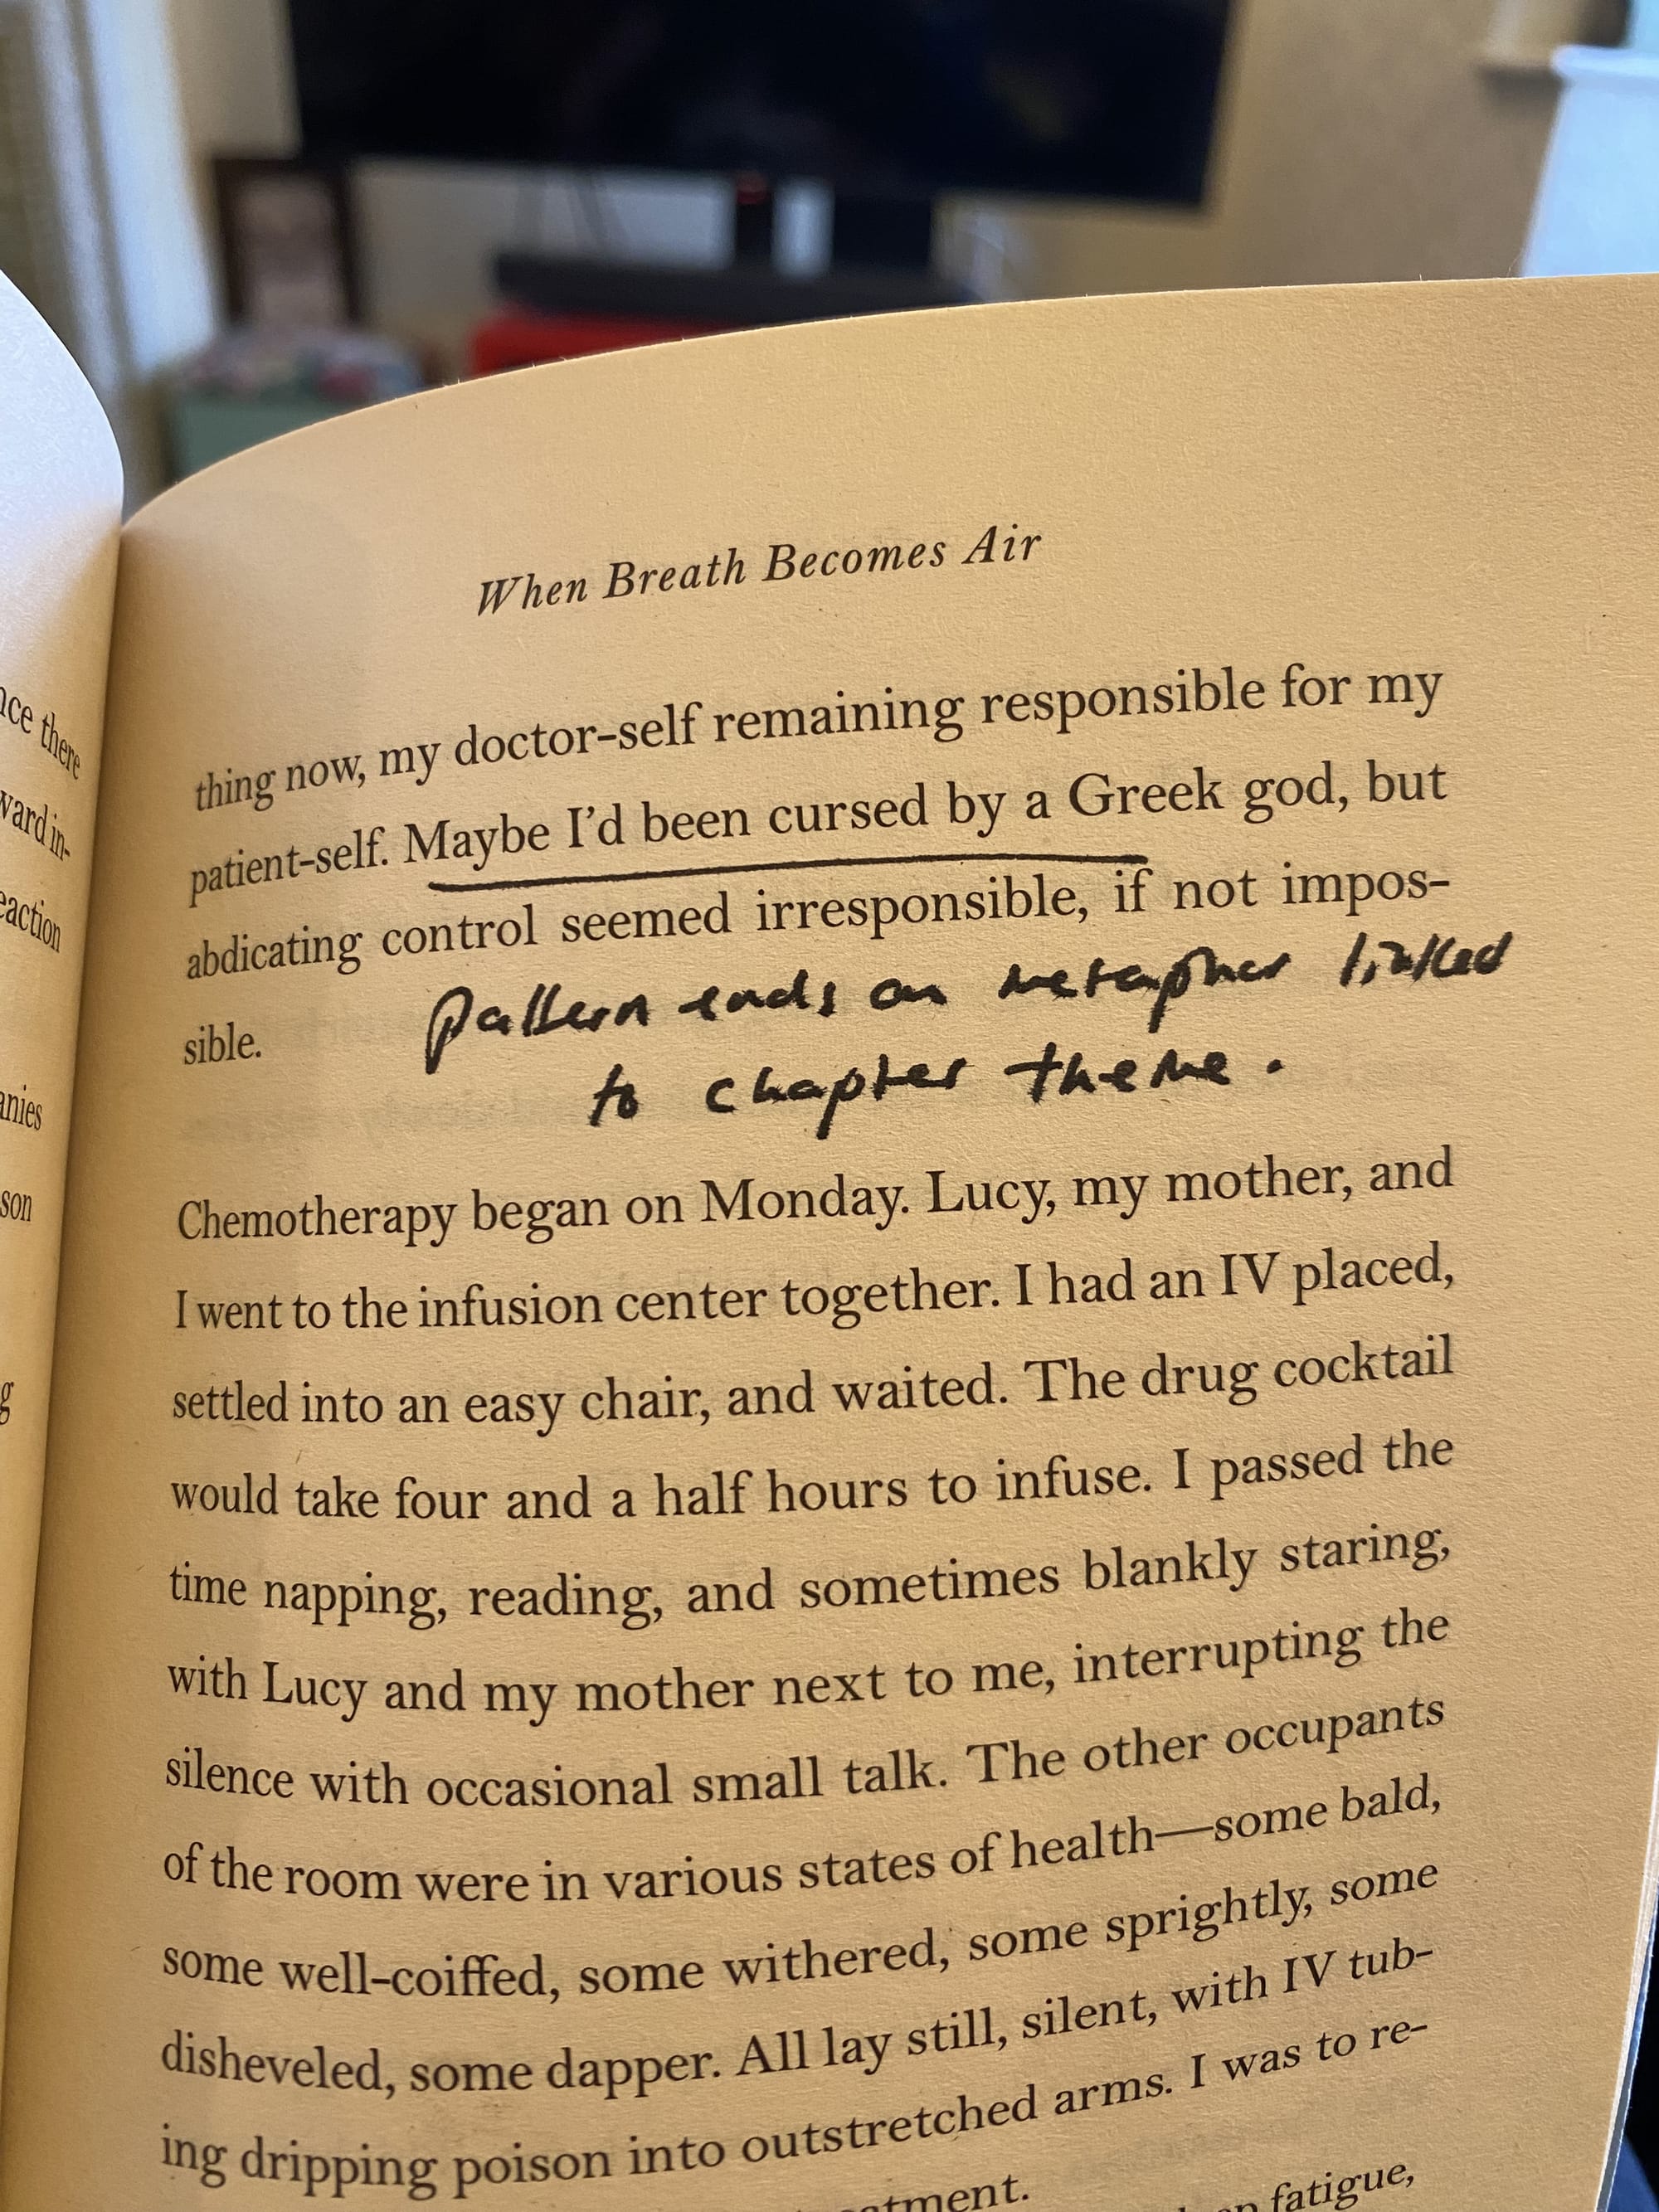 nce there
ward in-
eaction
anies
son
g
When Breath Becomes Air
thing now, my doctor-self remaining responsible for my
patient-self. Maybe I'd been cursed by a Greek god, but
abdicating control seemed irresponsible, if not impos-
sible.
Pattern ends on metaphor linked
to chapter theme.
Chemotherapy began on Monday. Lucy, my mother, and
I went to the infusion center together. I had an IV placed,
settled into an easy chair, and waited. The drug cocktail
would take four and a half hours to infuse. I passed the
time napping, reading, and sometimes blankly staring,
with Lucy and my mother next to me, interrupting the
silence with occasional small talk. The other occupants
of the room were in various states of health—some bald,
some well-coiffed, some withered, some sprightly, some
disheveled, some dapper. All lay still, silent, with IV tub-
ing dripping poison into outstretched arms. I was to re-
atment.
fatigue,